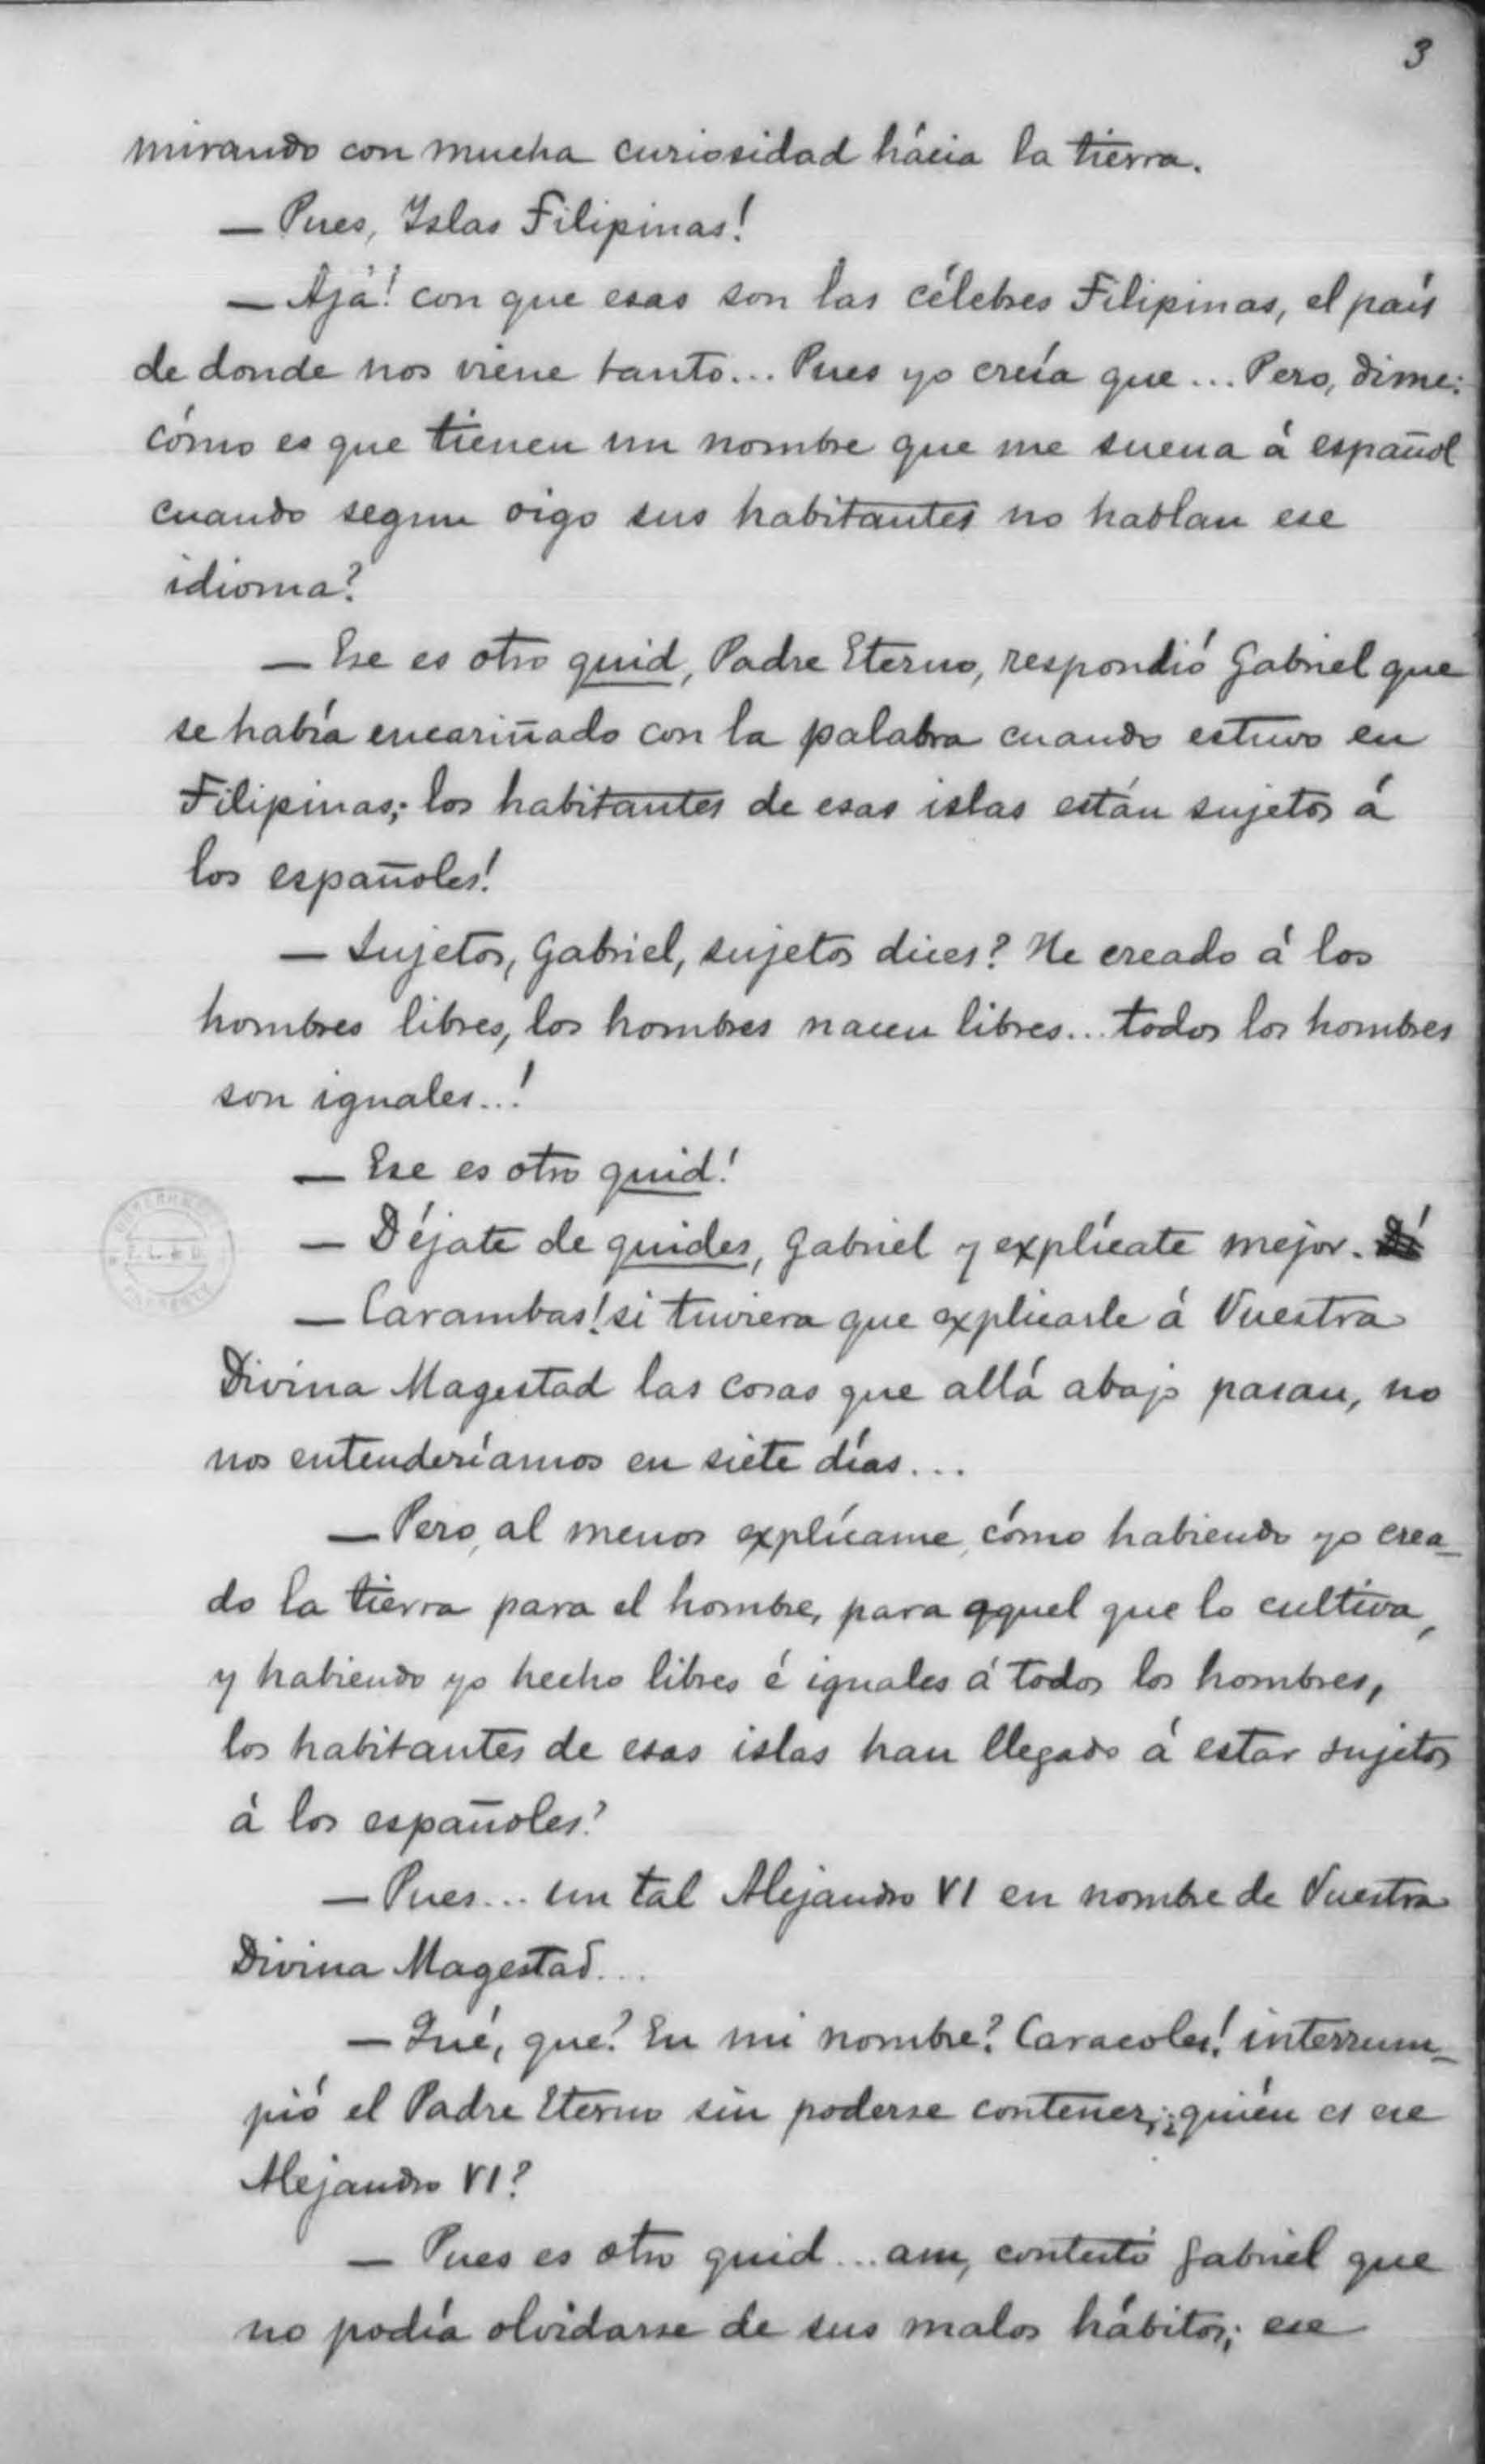 3
mirando con mucha curiosidad hácia la tierra.
— Pues, Islas Filipinas!
— Ajá! con que esas son las célebres Filipinas, el país
de donde nos viene tanto... Pues yo creía que... Pero, dime:
cómo es que tienen un nombre que me suena á español
cuando segun oigo sus habitantes no hablan ese
idioma?
— Ese es otro quid, Padre Eterno, respondió Gabriel que
se había encariñado con la palabra cuando estuvo en
Filipinas; los habitantes de esas islas están sujetos á
los españoles!
— Sujetos, Gabriel, sujetos dices? He creado á los
hombres libres, los hombres nacen libres... todos los hombres
son iguales...!
— Ese es otro quid!
— Déjate de quides, Gabriel y explícate mejor.
— Carambas! si tuviera que explicarle á Vuestra
Divina Magestad las cosas que allá abajo pasan, no
nos entenderíamos en siete días...
— Pero, al menos explícame, cómo habiendo yo crea-
do la tierra para el hombre, para aquel que lo cultiva,
y habiendo yo hecho libres é iguales á todos los hombres,
los habitantes de esas islas han llegado á estar sujetos
á los españoles?
— Pues... un tal Alejandro VI en nombre de Vuestra
Divina Magestad...
— Qué, qué? En mi nombre? Caracoles! interrum-
pió el Padre Eterno sin poderse contener; ¿quién es ese
Alejandro VI?
— Pues es otro quid... am, contestó Gabriel que
no podía olvidarse de sus malos hábitos; ese